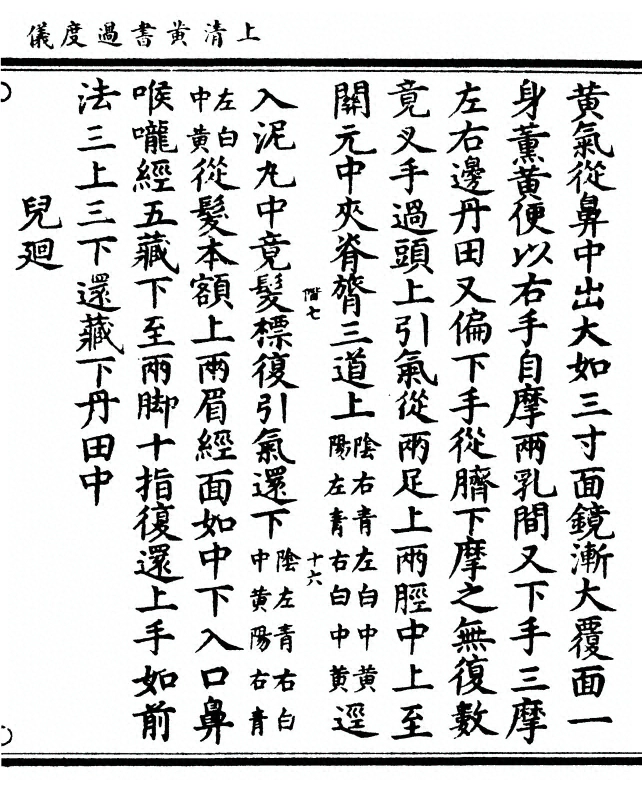 上清黃書過度儀
黃氣從鼻中出大如三寸面鏡漸大覆面一
身薰黃便以右手自摩兩乳間又下手三摩
左右邊丹田又偏下手從臍下摩之無復數
竟叉手過頭上引氣從兩足上兩脛中上至
關元中夾脊膂三道上陰右青左白中黃陽左青右白中黃逕
階七 十六
入泥丸中竟髮標復引氣還下陰左青右白中黃陽右青
左白中黃從髮本額上兩眉經面如中下入口鼻
喉嚨經五藏下至兩脚十指復還上手如前
法三上三下還藏下丹田中
兒廻